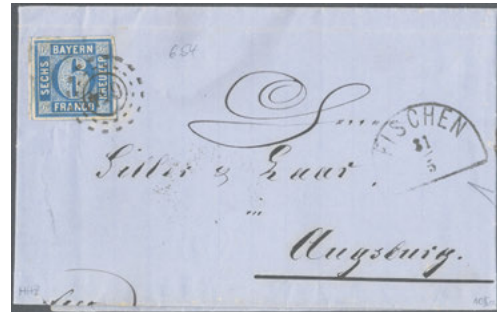 BAYERN
SECHS
6
KREUZER
FRANCO
654
FISCHEN
31
5
Siller & Laar
in
Augsburg.